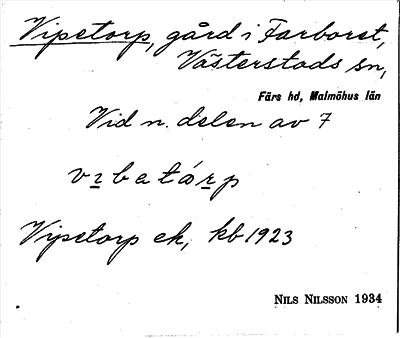 Vipetorp, gård i Farborst,
Västerstads sn,
Färs hd, Malmöhus län
Vid n. delen av 7
Vipetorp ek, kb 1923
NILS NILSSON 1934